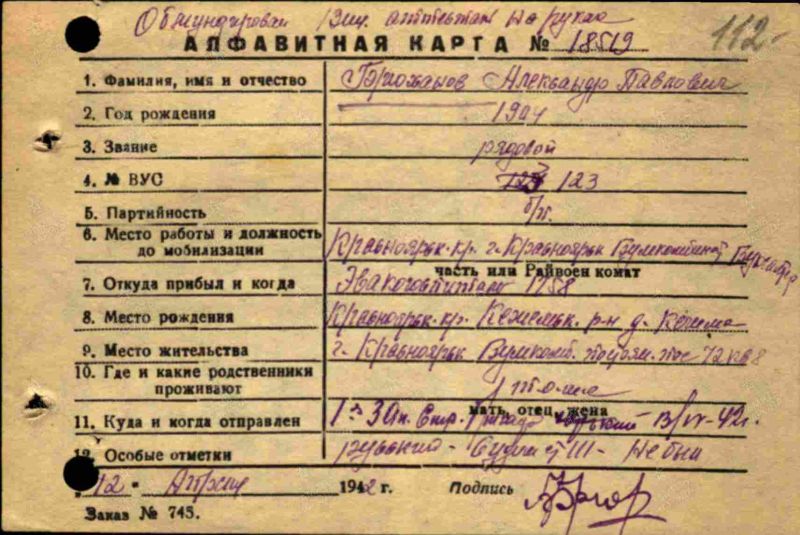 Обмундирован Вещ. аттестат на руках
112-
АЛФАВИТНАЯ КАРТА № 18519
1. Фамилия, имя и отчество Александр Павлович
2. Год рождения 1904
3. Звание рядовой
4. № ВУС 123
5. Партийность б/п.
6. Место работы и должность до мобилизации Красноярск. кр. г. Красноярск Бумкомбинат
часть или Райвоен комат
7. Откуда прибыл и когда Эвакогоспиталь 1758
8. Место рождения Красноярск. кр. Кежемск. р-н д. Кежма
9. Место жительства г. Красноярск Бумкомб. 72 кв 8
10. Где и какие родственники проживают жена
мать, отец, жена
11. Куда и когда отправлен 1-я Зап. Стр. 13/IV-42г.
12. Особые отметки русский - Судим - Не был
"12" Апреля 1942 г. Подпись
Заказ № 745.